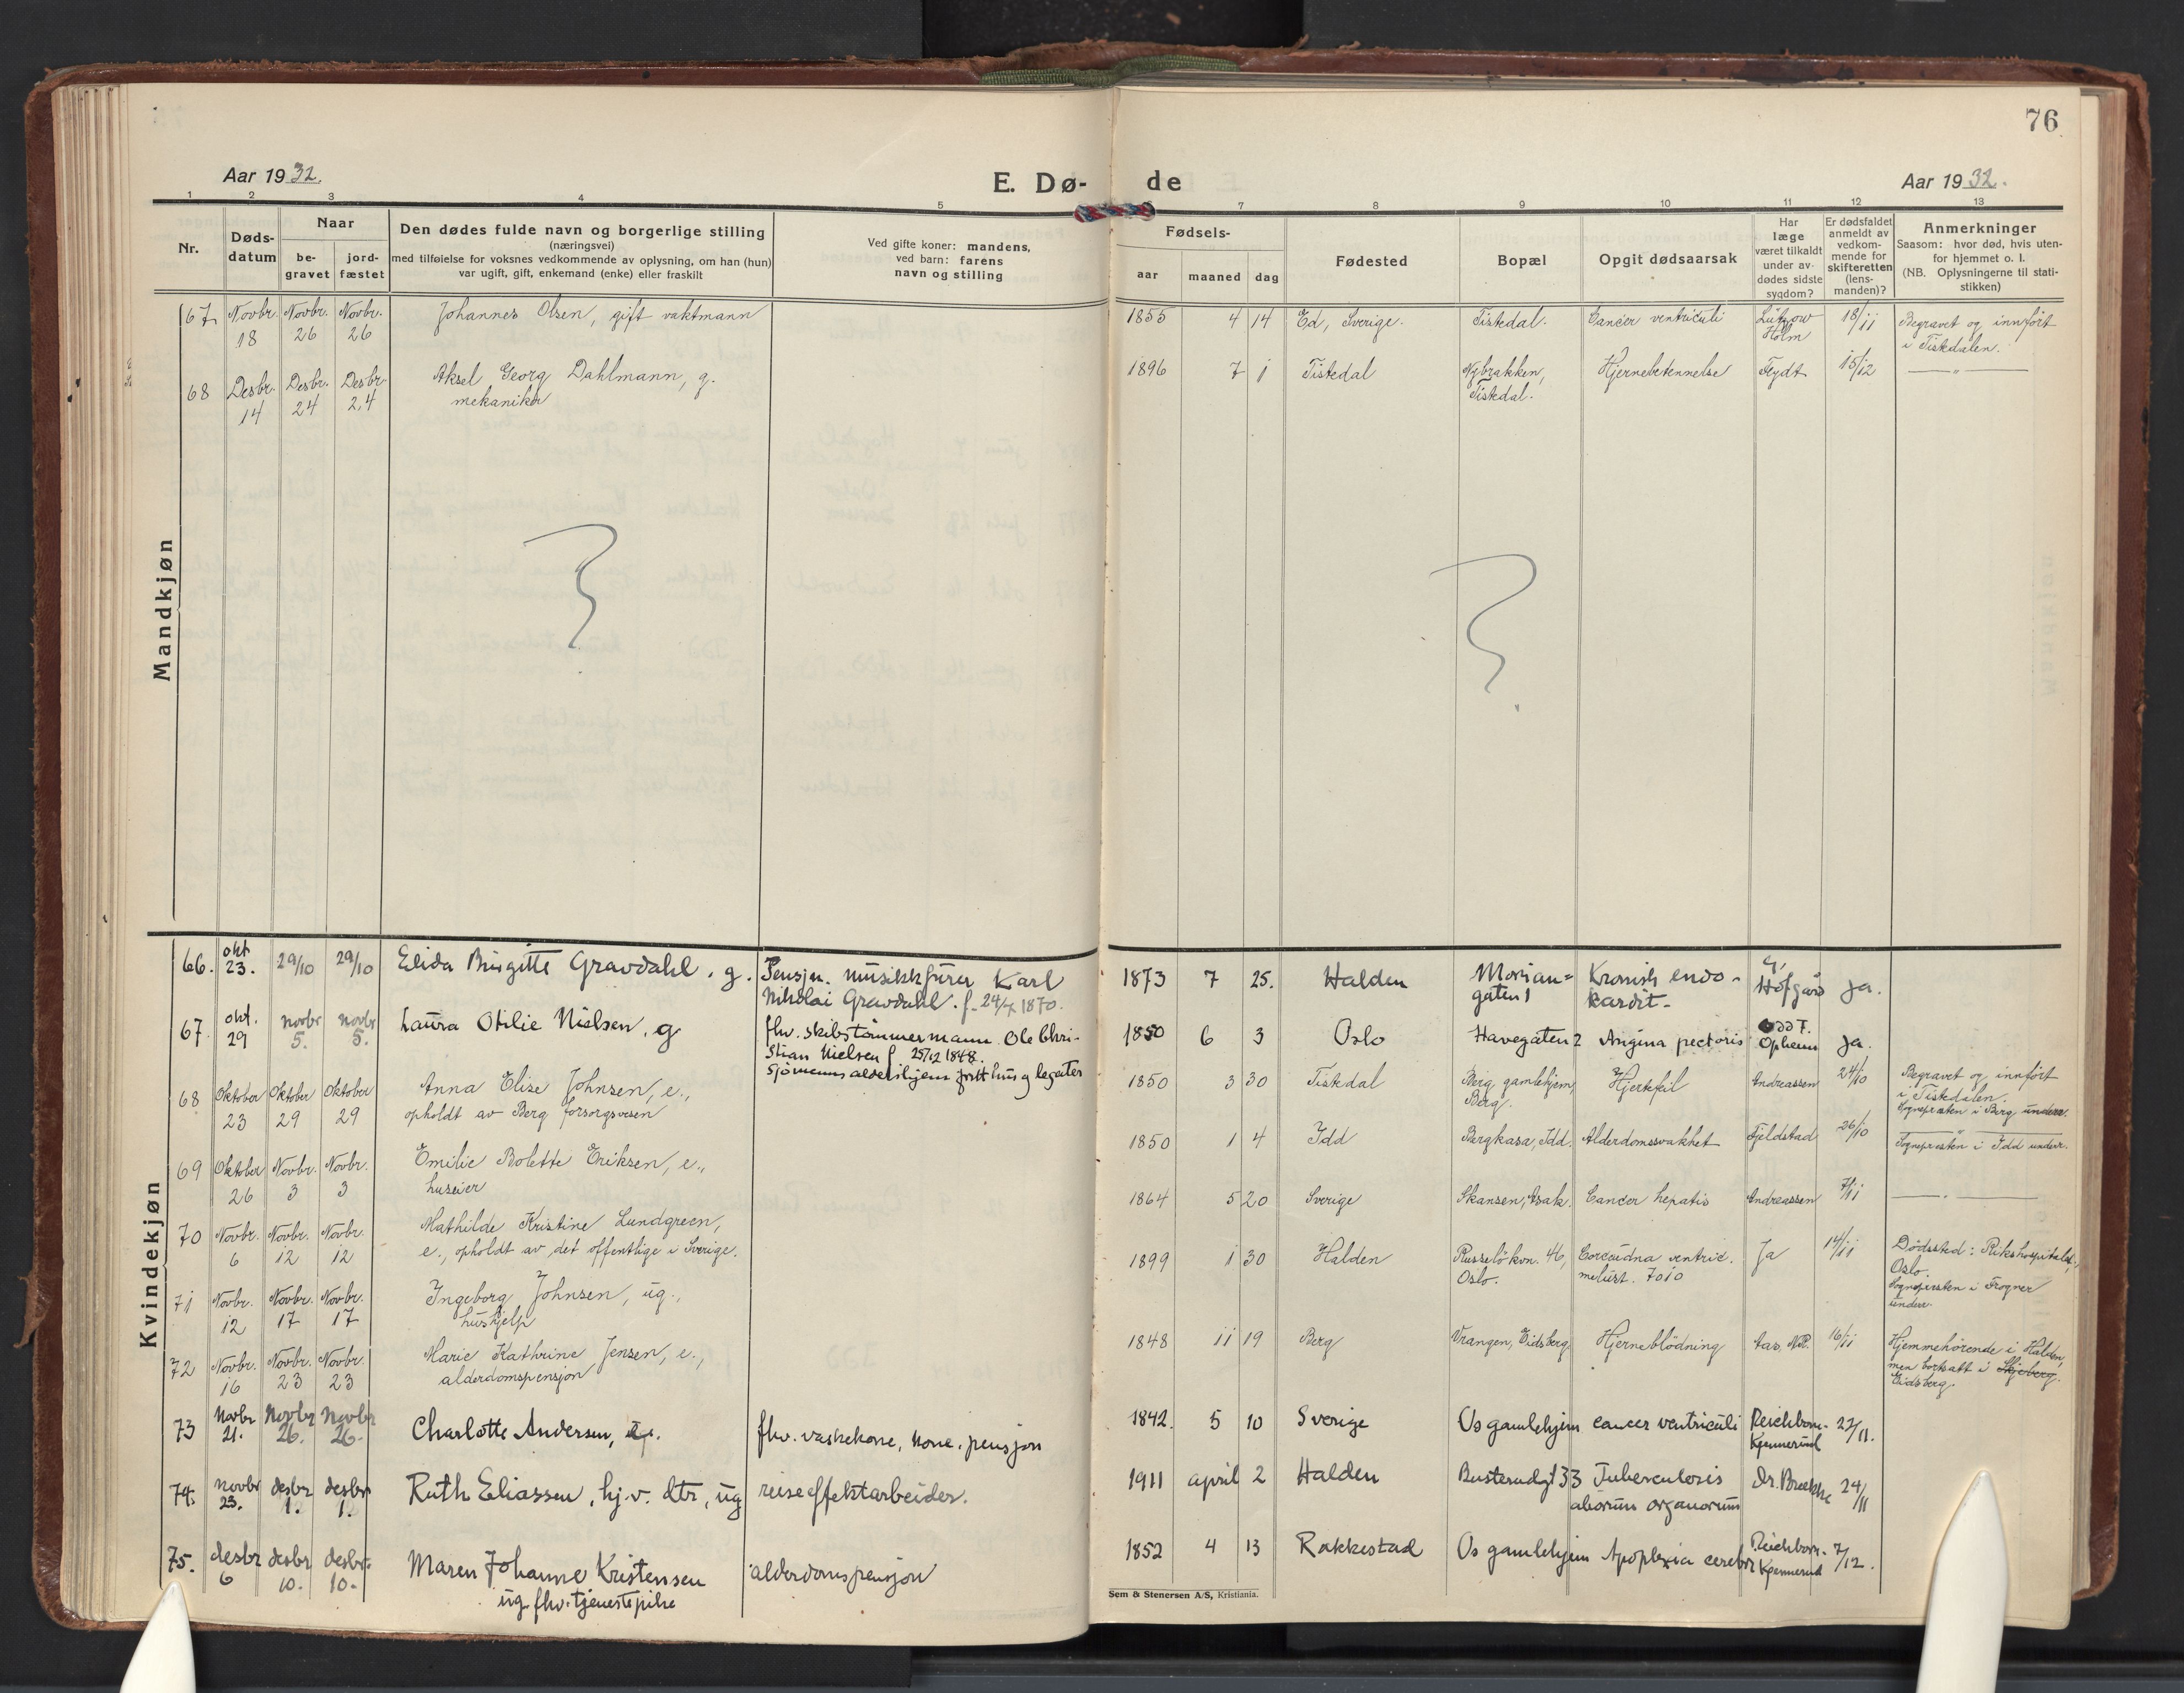 76
Aar 1932.
E. Dø- de
Aar 1932.
1 2 3 4 5 6 7 8 9 10 11 12 13
Nr.
Døds-
datum
Naar
be-
gravet
jord-
fæstet
Den dødes fulde navn og borgerlige stilling
(næringsvei)
med tilføielse for voksnes vedkommende av oplysning, om han (hun)
var ugift, gift, enkemand (enke) eller fraskilt
Ved gifte koner: mandens,
ved barn: farens
navn og stilling
Fødsels-
aar maaned dag
Fødested
Bopæl
Opgit dødsaarsak
Har
læge
været tilkaldt
under av-
dødes sidste
sygdom?
Er dødsfaldet
anmeldt av
vedkom-
mende for
skifteretten
(lens-
manden)?
Anmerkninger
Saasom: hvor død, hvis uten-
for hjemmet o. l.
(NB. Oplysningerne til stati-
stikken)
Mandkjøn
67 Novbr. Novbr. Novbr. Johannes Olsen, gift vaktmann 1855 4 14 Ed, Sverige. Tistedal. Cancer ventriculi Lützow 18/11 Begravet og innført
18 26 26 Holm i Tistedalen.
68 Desbr. Desbr. Desbr. Aksel Georg Dahlmann, g. 1896 7 1 Tistedal Nybrakken, Hjernebetennelse Feydt 15/12 — " —
14 24 24 mekaniker Tistedal.
Kvindekjøn
66. okt 29/10 29/10 Elida Birgitte Gravdahl. g. Pensjn. musikkfürer Karl 1873 7 25. Halden Morian= Kronisk endo- Ja.
23. Nikolai Gravdahl. f. 24/7 1870. gaten 1 kardit. Höfgård
67 okt. novbr novbr Laura Otilie Nielsen. g fhv. skibstömmermann Ole Chri- 1850 6 3 Oslo Havegaten 2 Angina pectoris Odd F. Ja.
29 5. 5. stian Nielsen f. 25/12 1848. Opheim
Sjömenns aldershjem fritt hus og legater
68 Oktober Oktober Oktober Anna Elise Johnsen, e., 1850 3 30 Tistedal Berg gamlehjem, Hjertefeil Andreassen 24/10 Begravet og innført
23 29 29 opholdt av Berg forsorgsvesen Berg. i Tistedalen.
Sognepresten i Berg underr.
69 Oktober Novbr. Novbr. Emilie Bolette Eriksen, e., 1850 1 4 Idd Bergkasa, Idd. Alderdomssvakhet Fjeldstad 26/10 — " —
26 3 3 huseier Sognepresten i Idd underr.
70 Novbr. Novbr. Novbr. Mathilde Kristine Lundgreen, 1864 5 20 Sverige Skansen, Asak. Cancer hepatis Andreassen 7/11 — " —
6 12 12 e., opholdt av det offentlige i Sverige.
71 Novbr. Novbr. Novbr. Ingeborg Johnsen, ug., 1899 1 30 Halden Russeløkvn. 46, ventric. Ja 14/11 Dødssted: Rikshospitalet,
12 17 17 hushjelp Oslo. Oslo.
Sognepresten i Frogner
underr.
72 Novbr. Novbr. Novbr. Marie Kathrine Jensen, e., 1848 11 19 Berg Vrangen, Eidsberg Hjerneblödning Aas, 16/11 Hjemmehørende i Halden,
16 23 23 alderdomspensjon men bortsatt i Skjeberg.
Eidsberg.
73 Novbr Novbr Novbr Charlotte Andersen, fhv. vaskekone, kom. pensjon 1842. 5 10 Sverige Os gamlehjem cancer ventriculi Reichborn- 27/11.
21. 26. 26. Kjennerud
74. novbr desbr desbr Ruth Eliassen, hj.v. dtr, ug reiseeffektarbeider. 1911 april 2 Halden Busterudgt 33 Tuberculosis Dr. Brække 24/11
23. 1. 1. aliorum organorum
75. desbr desbr desbr. Maren Johanne Kristensen alderdomspensjon 1852 4 13 Rakkestad Os gamlehjem Apoplexia cerebri Reichborn- 7/12.
6 10. 10. ug. fhv. tjenestepike Kjennerud
Sem & Stenersen A/S, Kristiania.